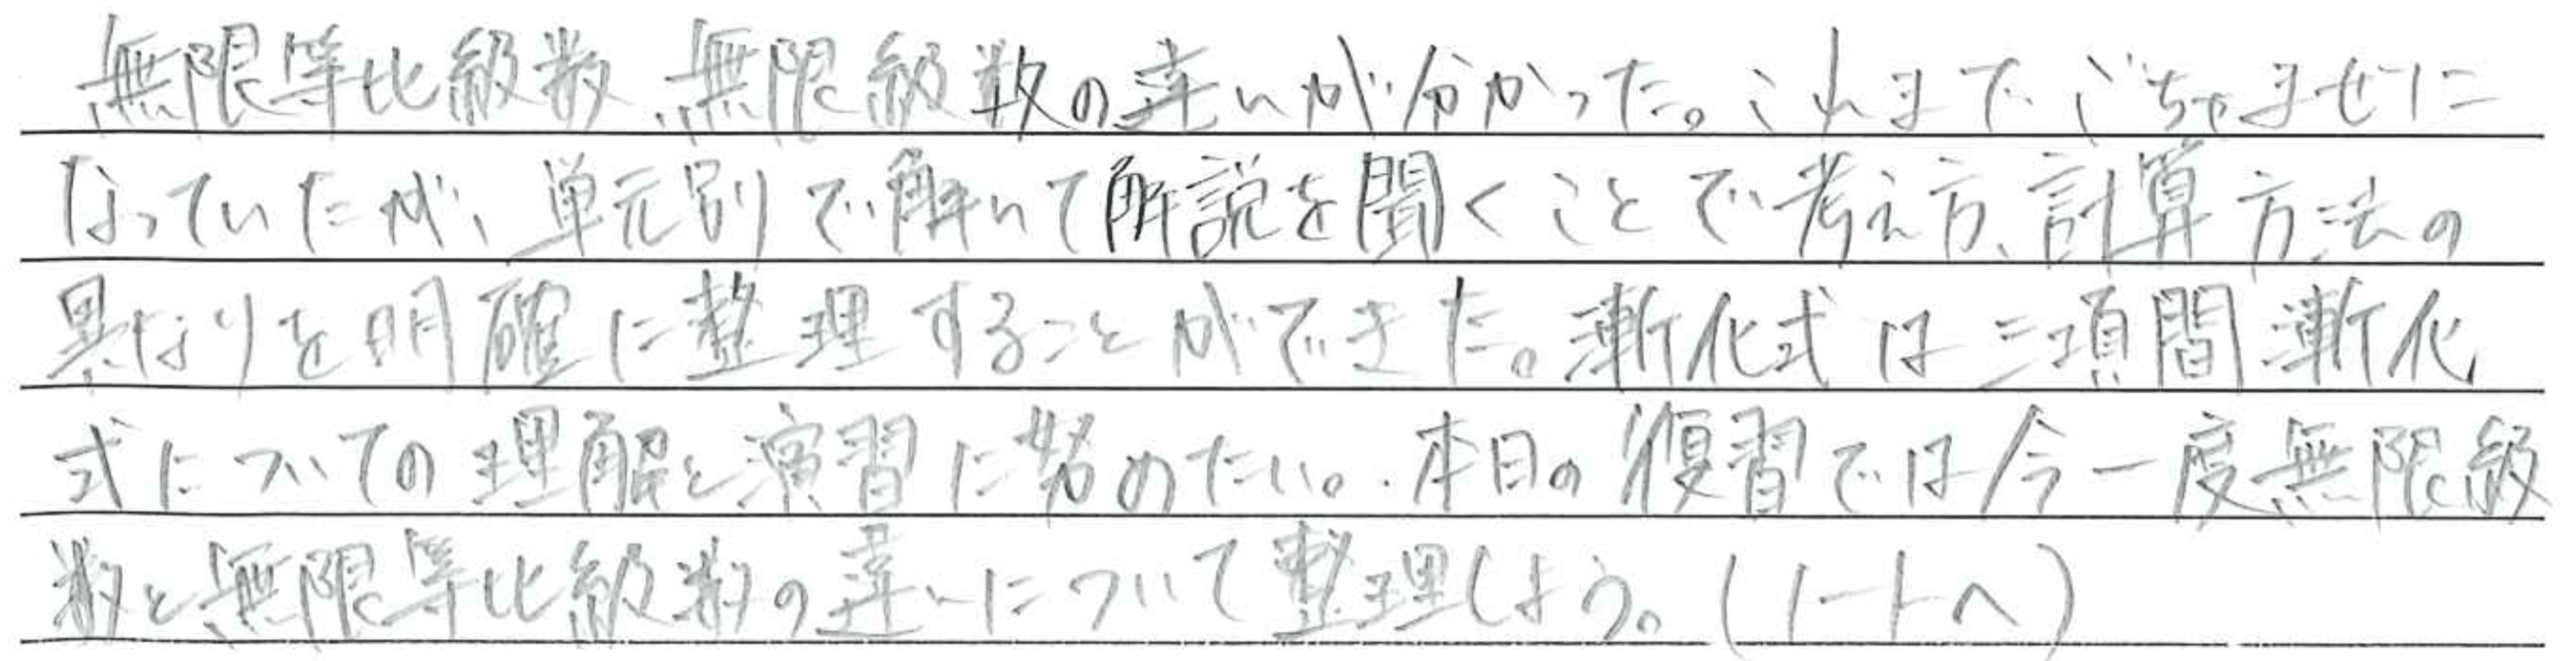 無限等比級数、無限級数の違いが分かった。これまでごちゃまぜに
なっていたが、単元別で解いて解説を聞くことで考え方、計算方法の
異なりを明確に整理することができた。漸化式は三項間漸化
式についての理解と演習に努めたい。本日の復習では今一度無限級
数と無限等比級数の違いについて整理しよう。(ノートへ)